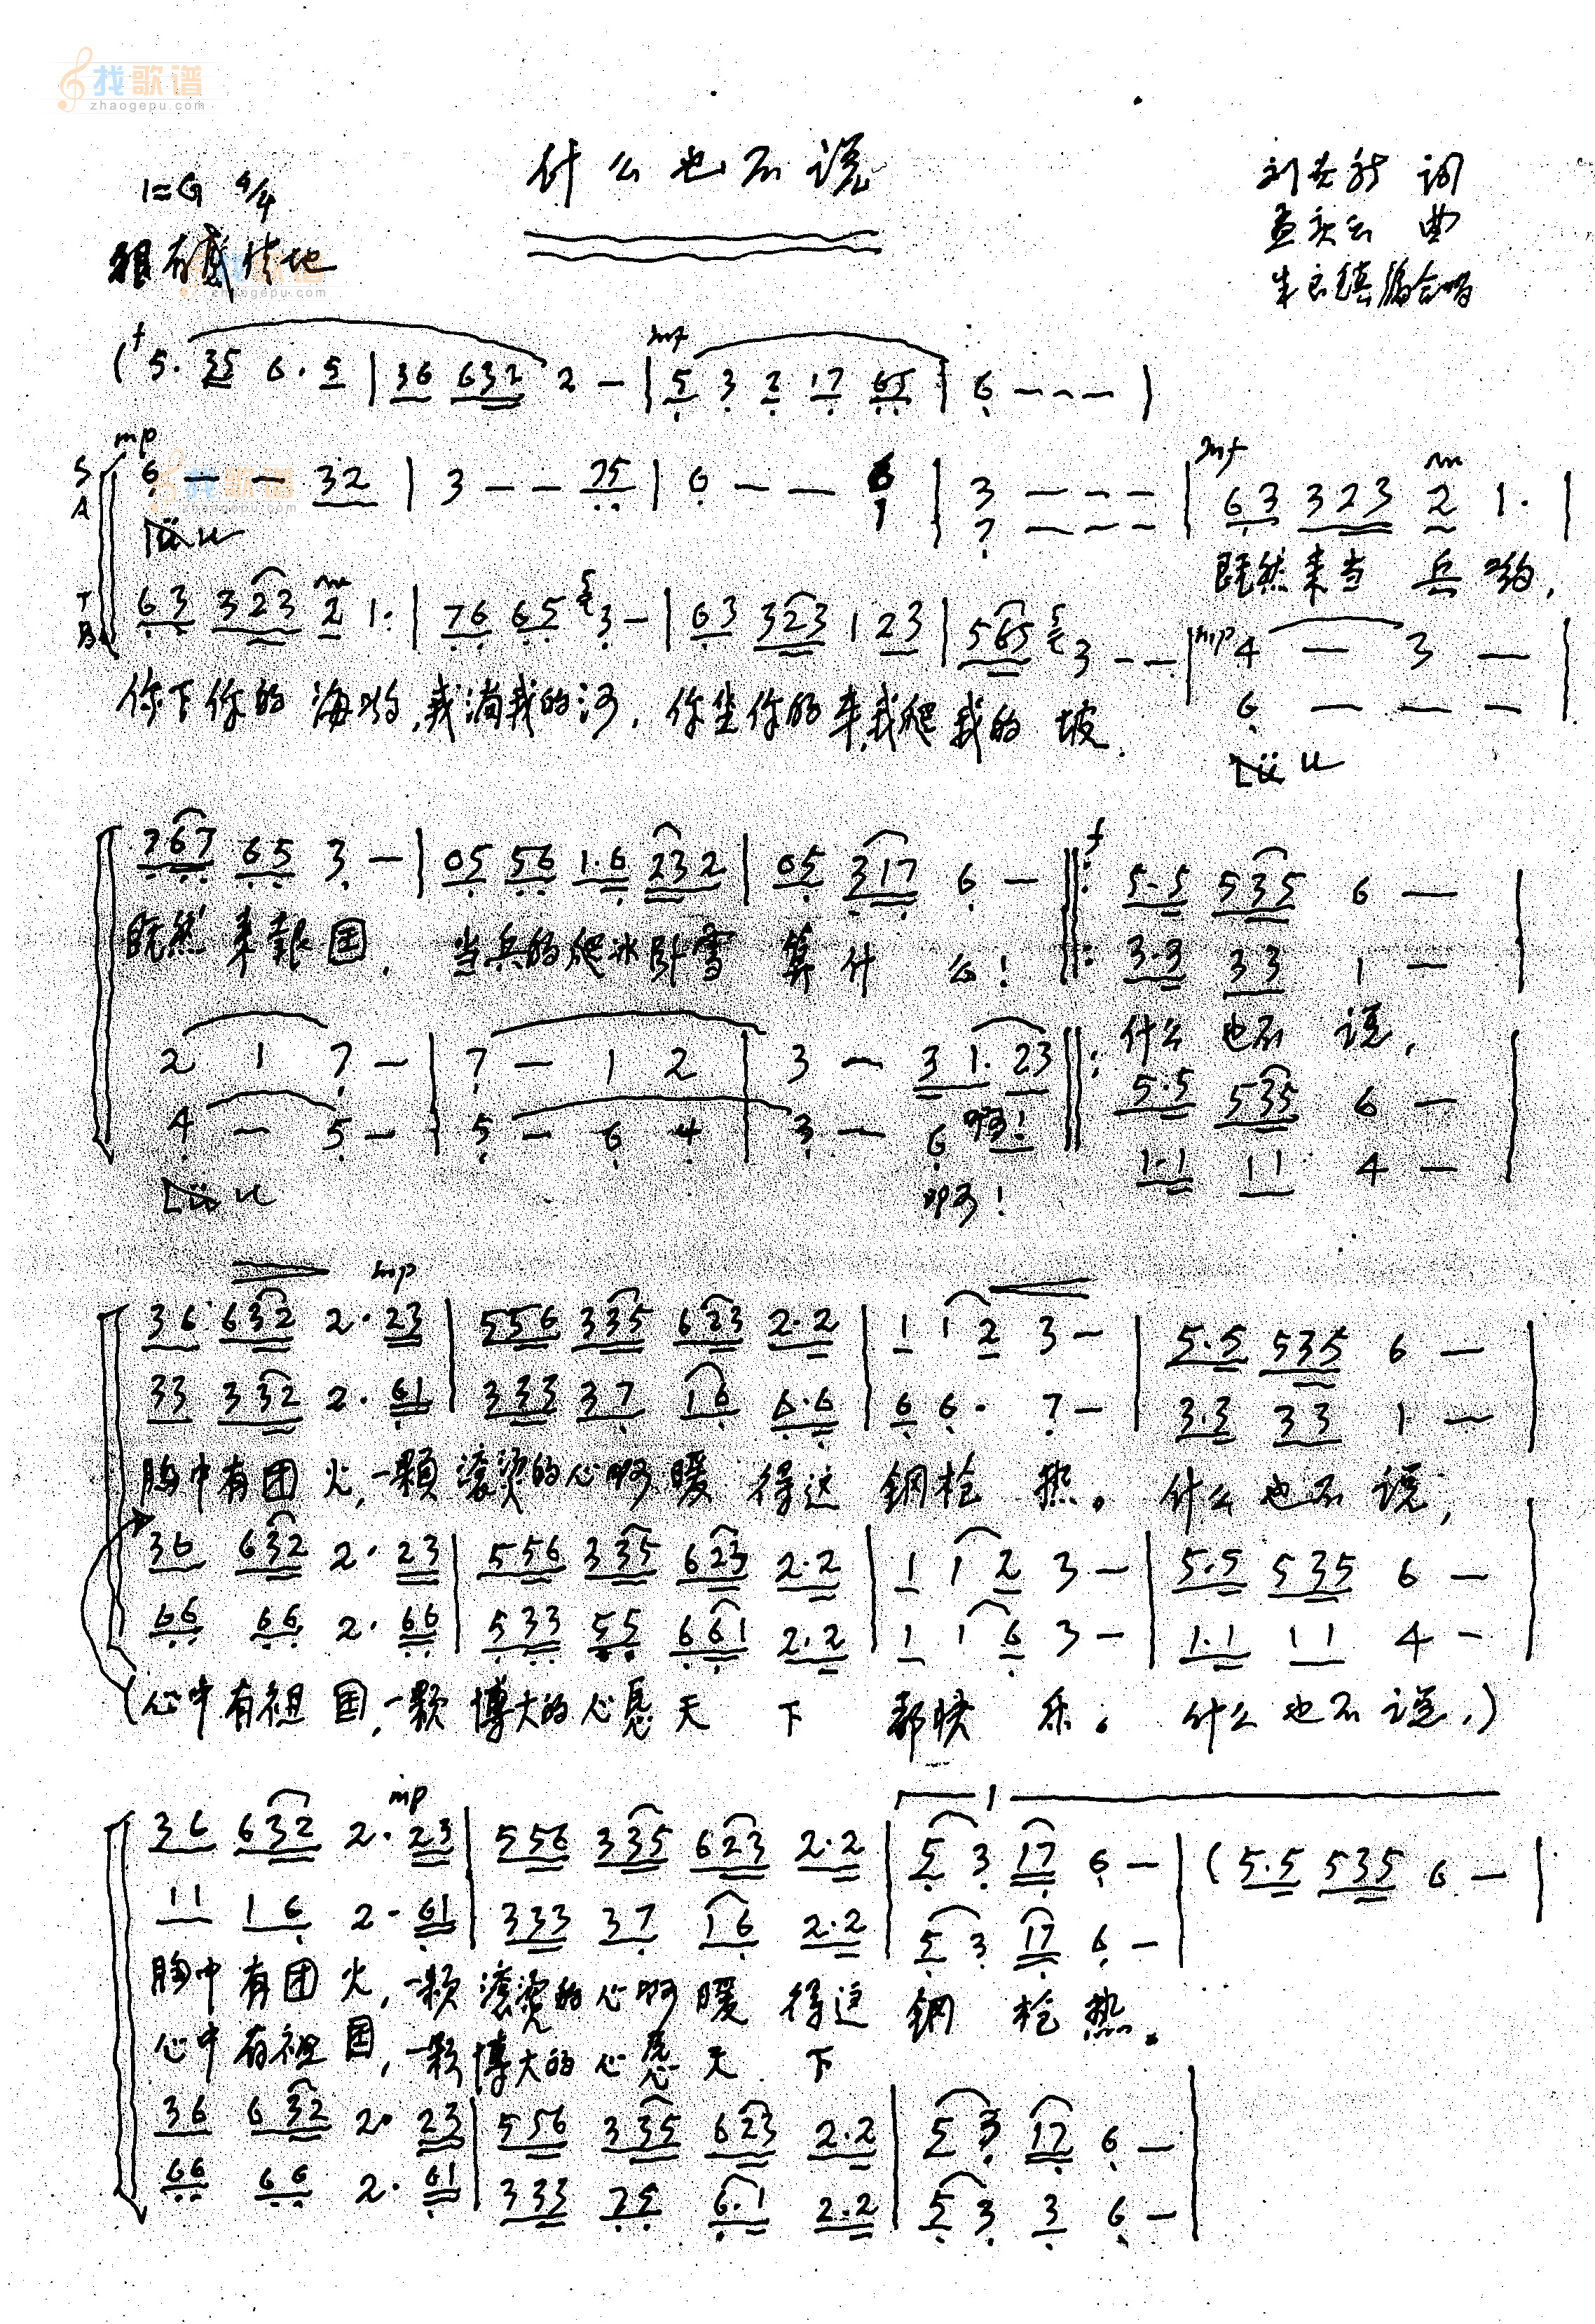 找歌谱
zhaogepu.com
什么也不说
1=G 4/4
词
曲
编合唱
很有感情地
找歌谱
zhaogepu.com
f mf
( 5· 35 6· 5 | 36 632 2 — | 5 3 2 17 65 | 6 — — — |
mp mf
找歌谱
zhaogepu.com
S 6 — — 32 | 3 — — 75 | 6 — — 6 | 3 — — — | 63 323 2 1· |
A 1 | 7 — — —
Lü u 既然来当 兵哟,
T 63 323 2 1· | 76 65 3 — | 63 323 1 23 | 565 3 — — | mp 4 — 3 — |
B 6 — — —
你下你的海哟,我淌我的河,你坐你的车,我爬我的坡.
Lü u
767 65 3 — | 05 56 1·6 232 | 05 317 6 — ‖: f 5·5 535 6 — |
3·3 33 1 — |
既然来报国. 当兵的爬冰卧雪 算什么!
什么也不说,
2 1 7 — | 7 — 1 2 | 3 — 3 1·23 ‖: 5·5 535 6 — |
4 — 5 — | 5 — 6 4 | 3 — 6 啊! ‖ 1·1 11 4 — |
Lü u 啊!
mp
36 632 2· 23 | 556 335 623 2·2 | 1 1 2 3 — | 5·5 535 6 — |
33 332 2· 61 | 333 37 16 6·6 | 6 6· 7 — | 3·3 33 1 — |
胸中有团火,一颗滚烫的心啊暖得这钢枪热。什么也不说,
36 632 2· 23 | 556 335 623 2·2 | 1 1 2 3 — | 5·5 535 6 — |
66 66 2· 66 | 533 55 661 2·2 | 1 1 6 3 — | 1·1 11 4 — |
(心中有祖国,一颗博大的心愿天下都快乐。什么也不说,)
mp 1
36 632 2· 23 | 556 335 623 2·2 | 5 3 17 6 — | ( 5·5 535 6 — |
11 16 2· 61 | 333 37 16 2·2 | 5 3 17 6 — |
胸中有团火,一颗滚烫的心啊暖得这钢枪热。
心中有祖国,一颗博大的心愿天下
36 632 2· 23 | 556 335 623 2·2 | 5 3 17 6 — |
66 66 2· 61 | 333 75 6·1 2·2 | 5 3 3 6 — |